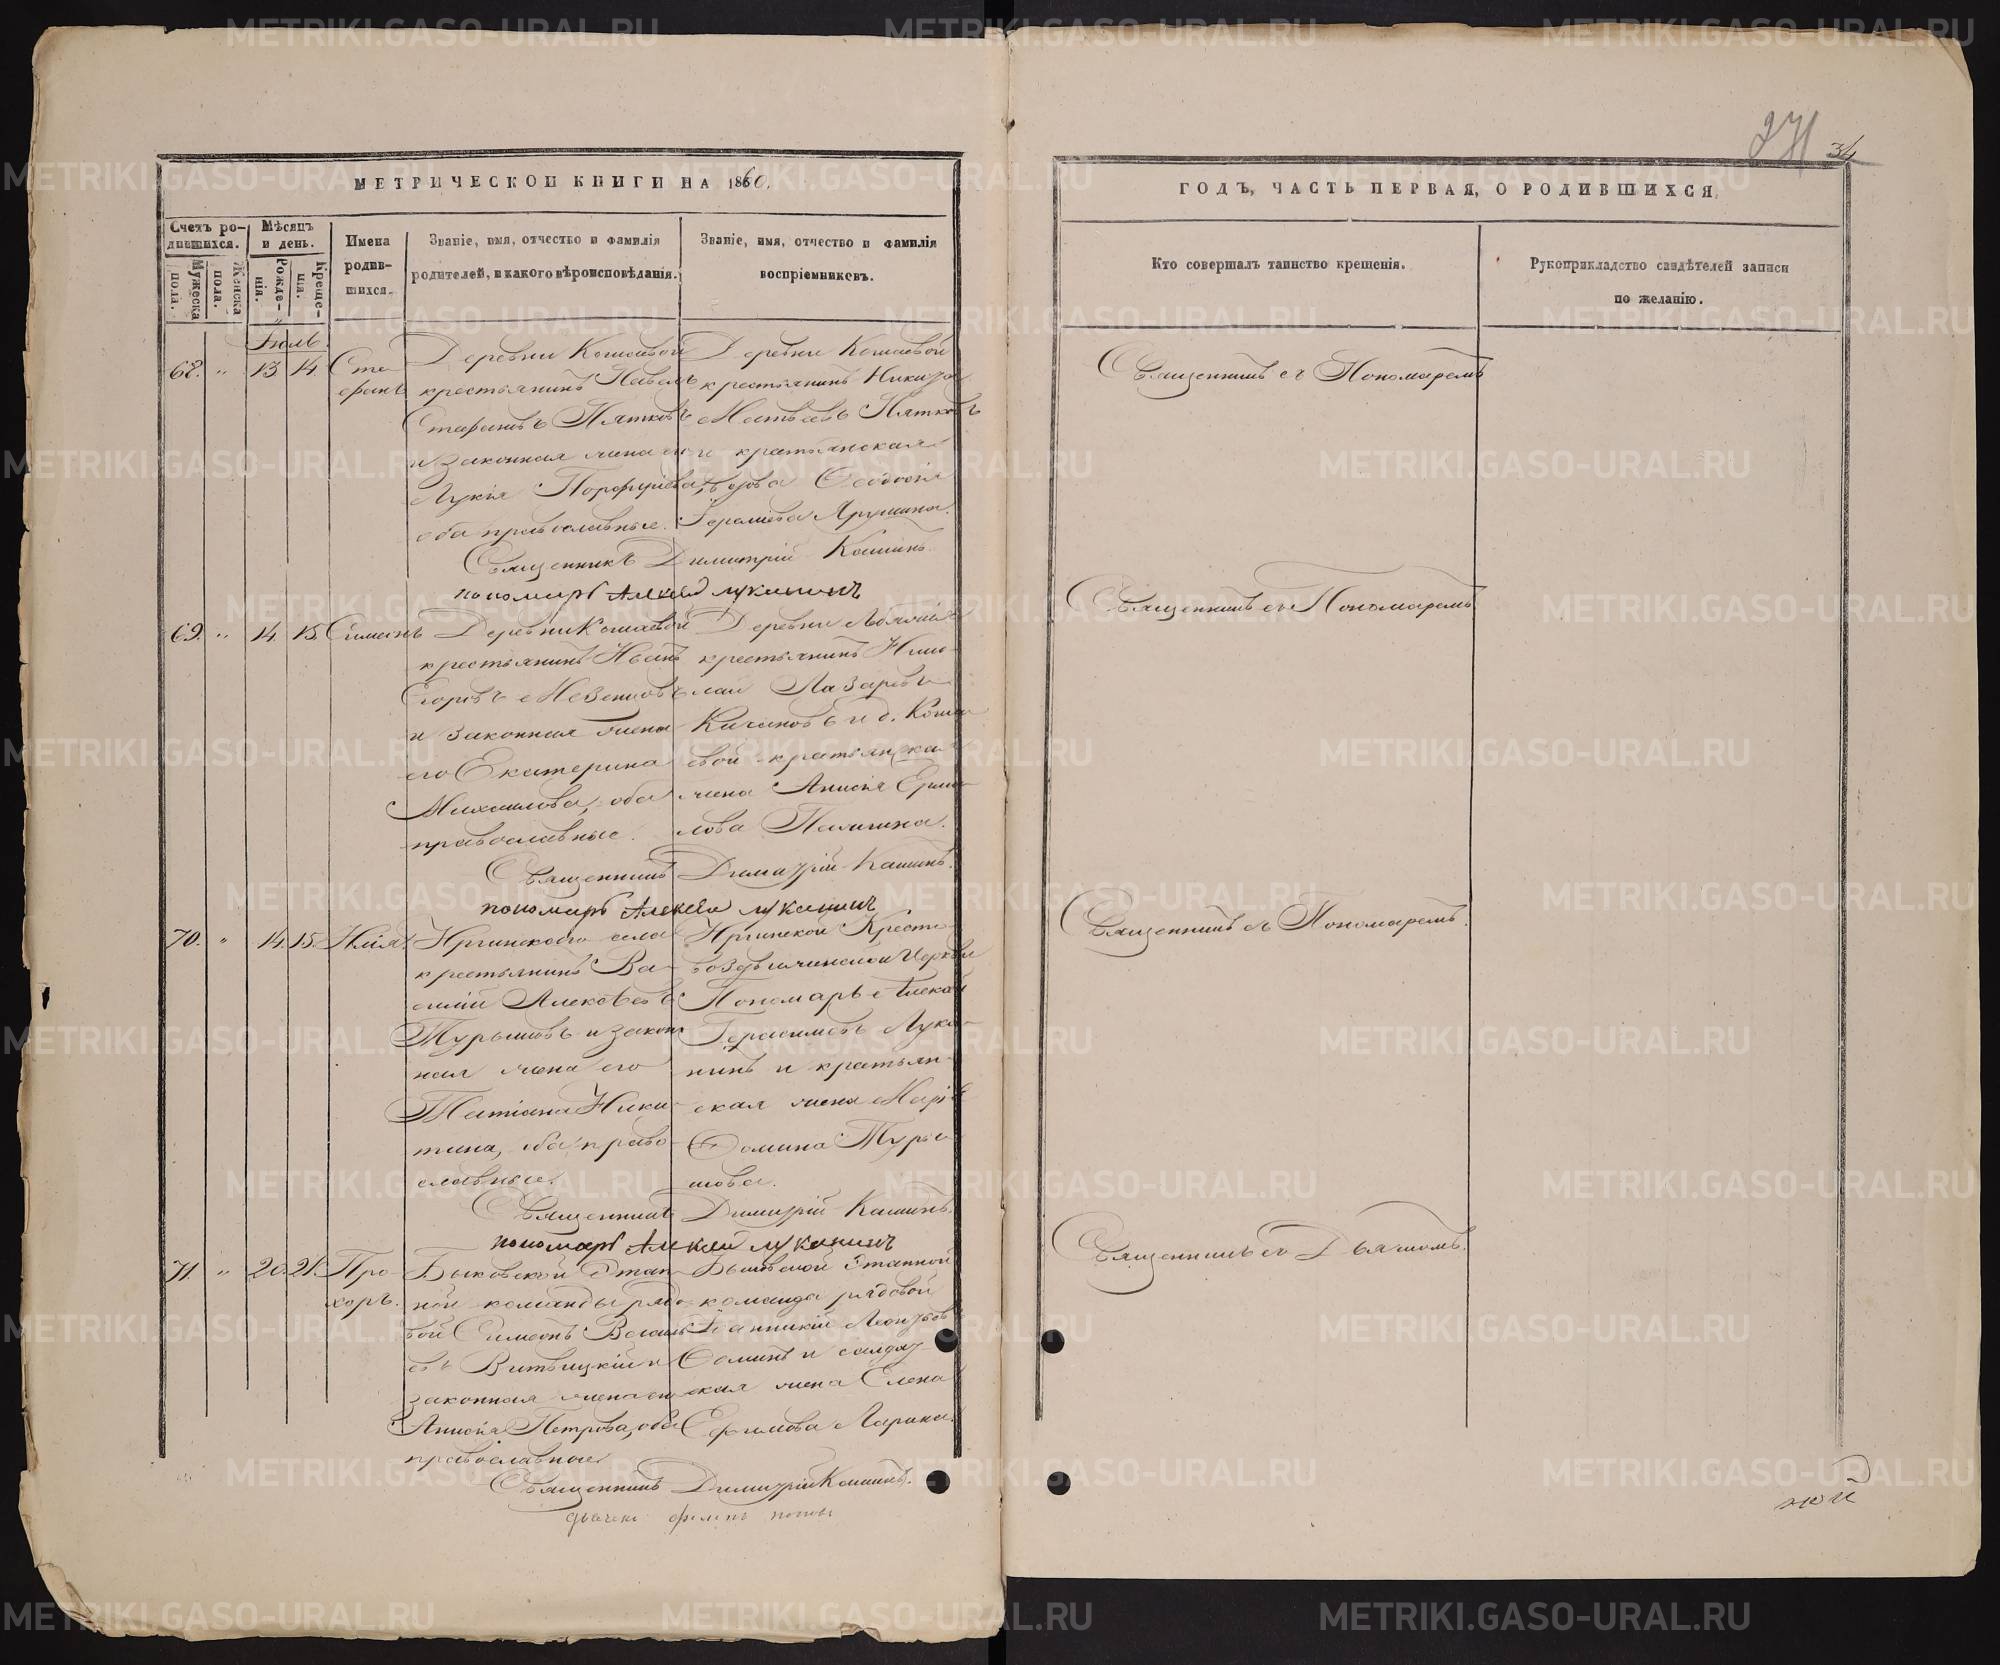 271 34
МЕТРИЧЕСКОЙ КНИГИ НА 1860.
Счетъ родившихся.
Мужеска пола.
Женска пола.
Мѣсяцъ и день.
Рожденія.
Крещенія.
Имена родившихся.
Званіе, имя, отчество и фамилія
родителей, и какого вѣроисповѣданія.
Званіе, имя, отчество и фамилія
воспріемниковъ.
Іюль.
68. „ 13. 14. Сте-
фанъ
Деревни Кошаевой
крестьянинъ Павелъ
Стефановъ Пятковъ
и законная жена его
Лукія Порфирьева,
оба православные.
Деревни Кошаевой
крестьянинъ Никита
Матвѣевъ Пятковъ
и крестьянская
вдова Ѳеодосія
Священникъ Димитрій Кашинъ.
пономарь Алексей Луканинъ
69. „ 14. 15. Симеонъ
Деревни Кошаевой
крестьянинъ Иванъ
Егоровъ Мезенцовъ
и законная жена
его Екатерина
Михаилова, оба
православные.
Деревни
крестьянинъ Нико-
лай Лазаревъ
и д. Коша-
евой крестьянская
жена Анисія Ерми-
лова
Священникъ Димитрій Кашинъ.
пономарь Алексей Луканинъ
70. „ 14. 15. Илія.
Иргинскаго села
крестьянинъ Ва-
силій Алексѣевъ
Турышовъ и закон-
ная жена его
Татіана Ники-
тина, оба право-
славные.
Иргинской Кресто-
воздвиженской Церкви
Пономарь Алексѣй
Герасимовъ Лука-
нинъ и крестьян-
ская жена Марія
Ѳомина Туры-
шова.
Священникъ Димитрій Кашинъ.
пономарь Алексей Луканинъ
71. „ 20. 21. Про-
хоръ.
Быковской Этап-
ной команды рядо-
вой Симеонъ
Витвицкій и
законная жена его
Анисія Петрова, оба
православные
Быковской Этапной
команды рядовой
Ѳоминъ и солдат-
ская жена Елена
Ефимова Ларина.
Священникъ Димитрій Кашинъ.
дьячекъ
ГОДЪ, ЧАСТЬ ПЕРВАЯ, О РОДИВШИХСЯ.
Кто совершалъ таинство крещенія.
Рукоприкладство свидѣтелей записи
по желанію.
Священникъ съ Пономаремъ
Священникъ съ Пономаремъ
Священникъ съ Пономаремъ.
Священникъ съ Дьячкомъ.
METRIKI.GASO-URAL.RU